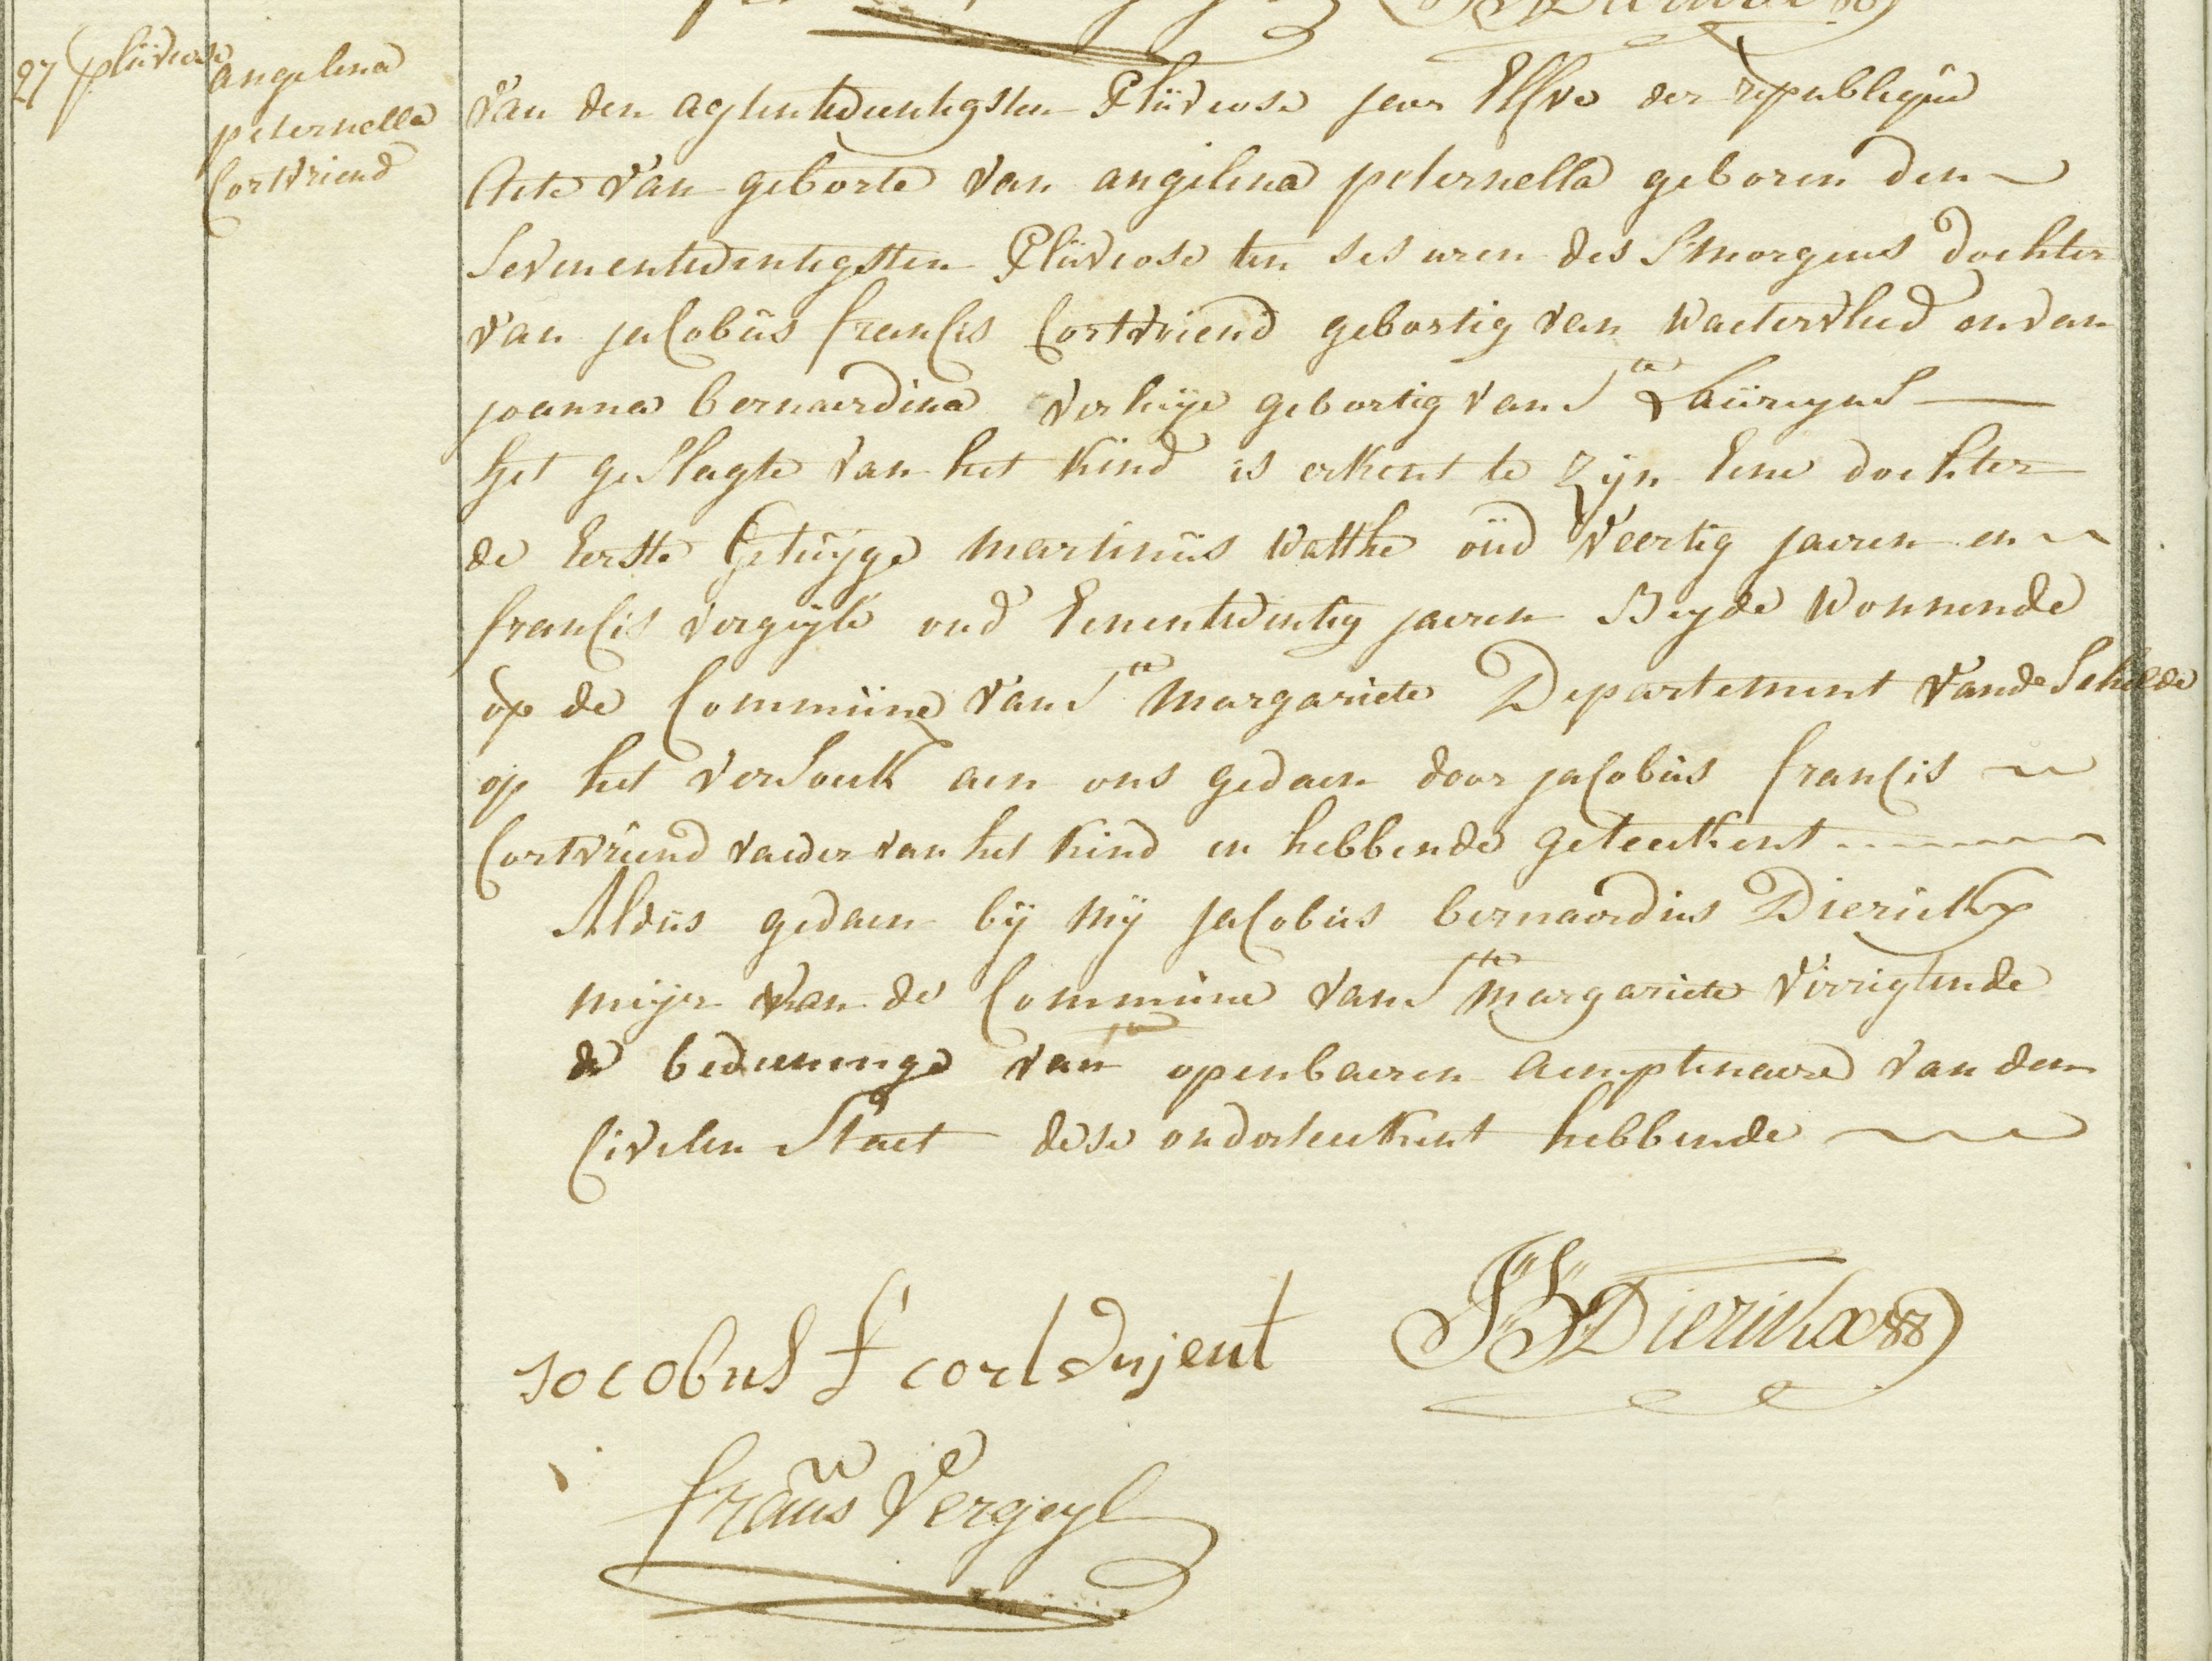 27 pluviose
angelina
peternella
Cortvriend
van den agtentwentigsten Pluviose jaer Elfve der republique
Acte van geborte van angelina peternella geboren den
Seventwentigsten Pluviose ten ses uren des Smorgens dochter
van jacobus francis Cortvriend gebortig van Waetervlied en van
joanna bernaerdina Verhije gebortig van Ste Laureyns
het geslagte van het kind is erkent te zijn Eene dochter
de Eerste Getuyge martinus Watthe oud Veertig jaeren en
francis Vergeyle oud Eenentwentig jaeren Beyde Wonnende
op de Commune van Ste Margariete Departement vande Schelde
op het versoeck aen ons gedaen door jacobus francis
Cortvriend vaeder van het kind en hebbende geteekent
Aldus gedaen bij mij jacobus bernaerdus Dierickx
meijer van de Commune van Ste margariete Verrigtende
de bedieninge van openbaeren aemptenaere van den
Civilen Staet dese onderteekent hebbende
Jocobus f cortvrijent
JB Dierickx
francis Vergeyl